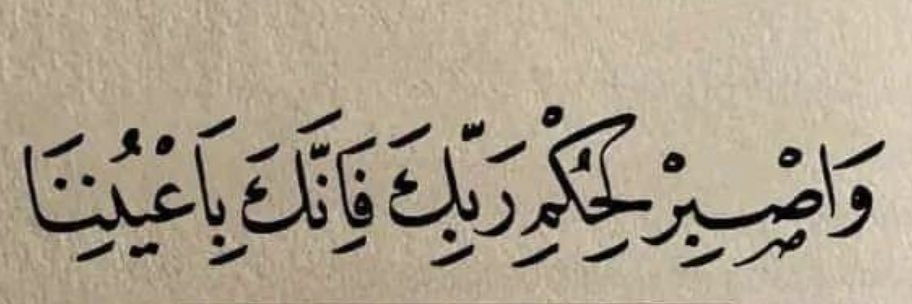 وَاصْبِرْ لِحُكْمِ رَبِّكَ فَاِنَّكَ بِاَعْيُنِنَا